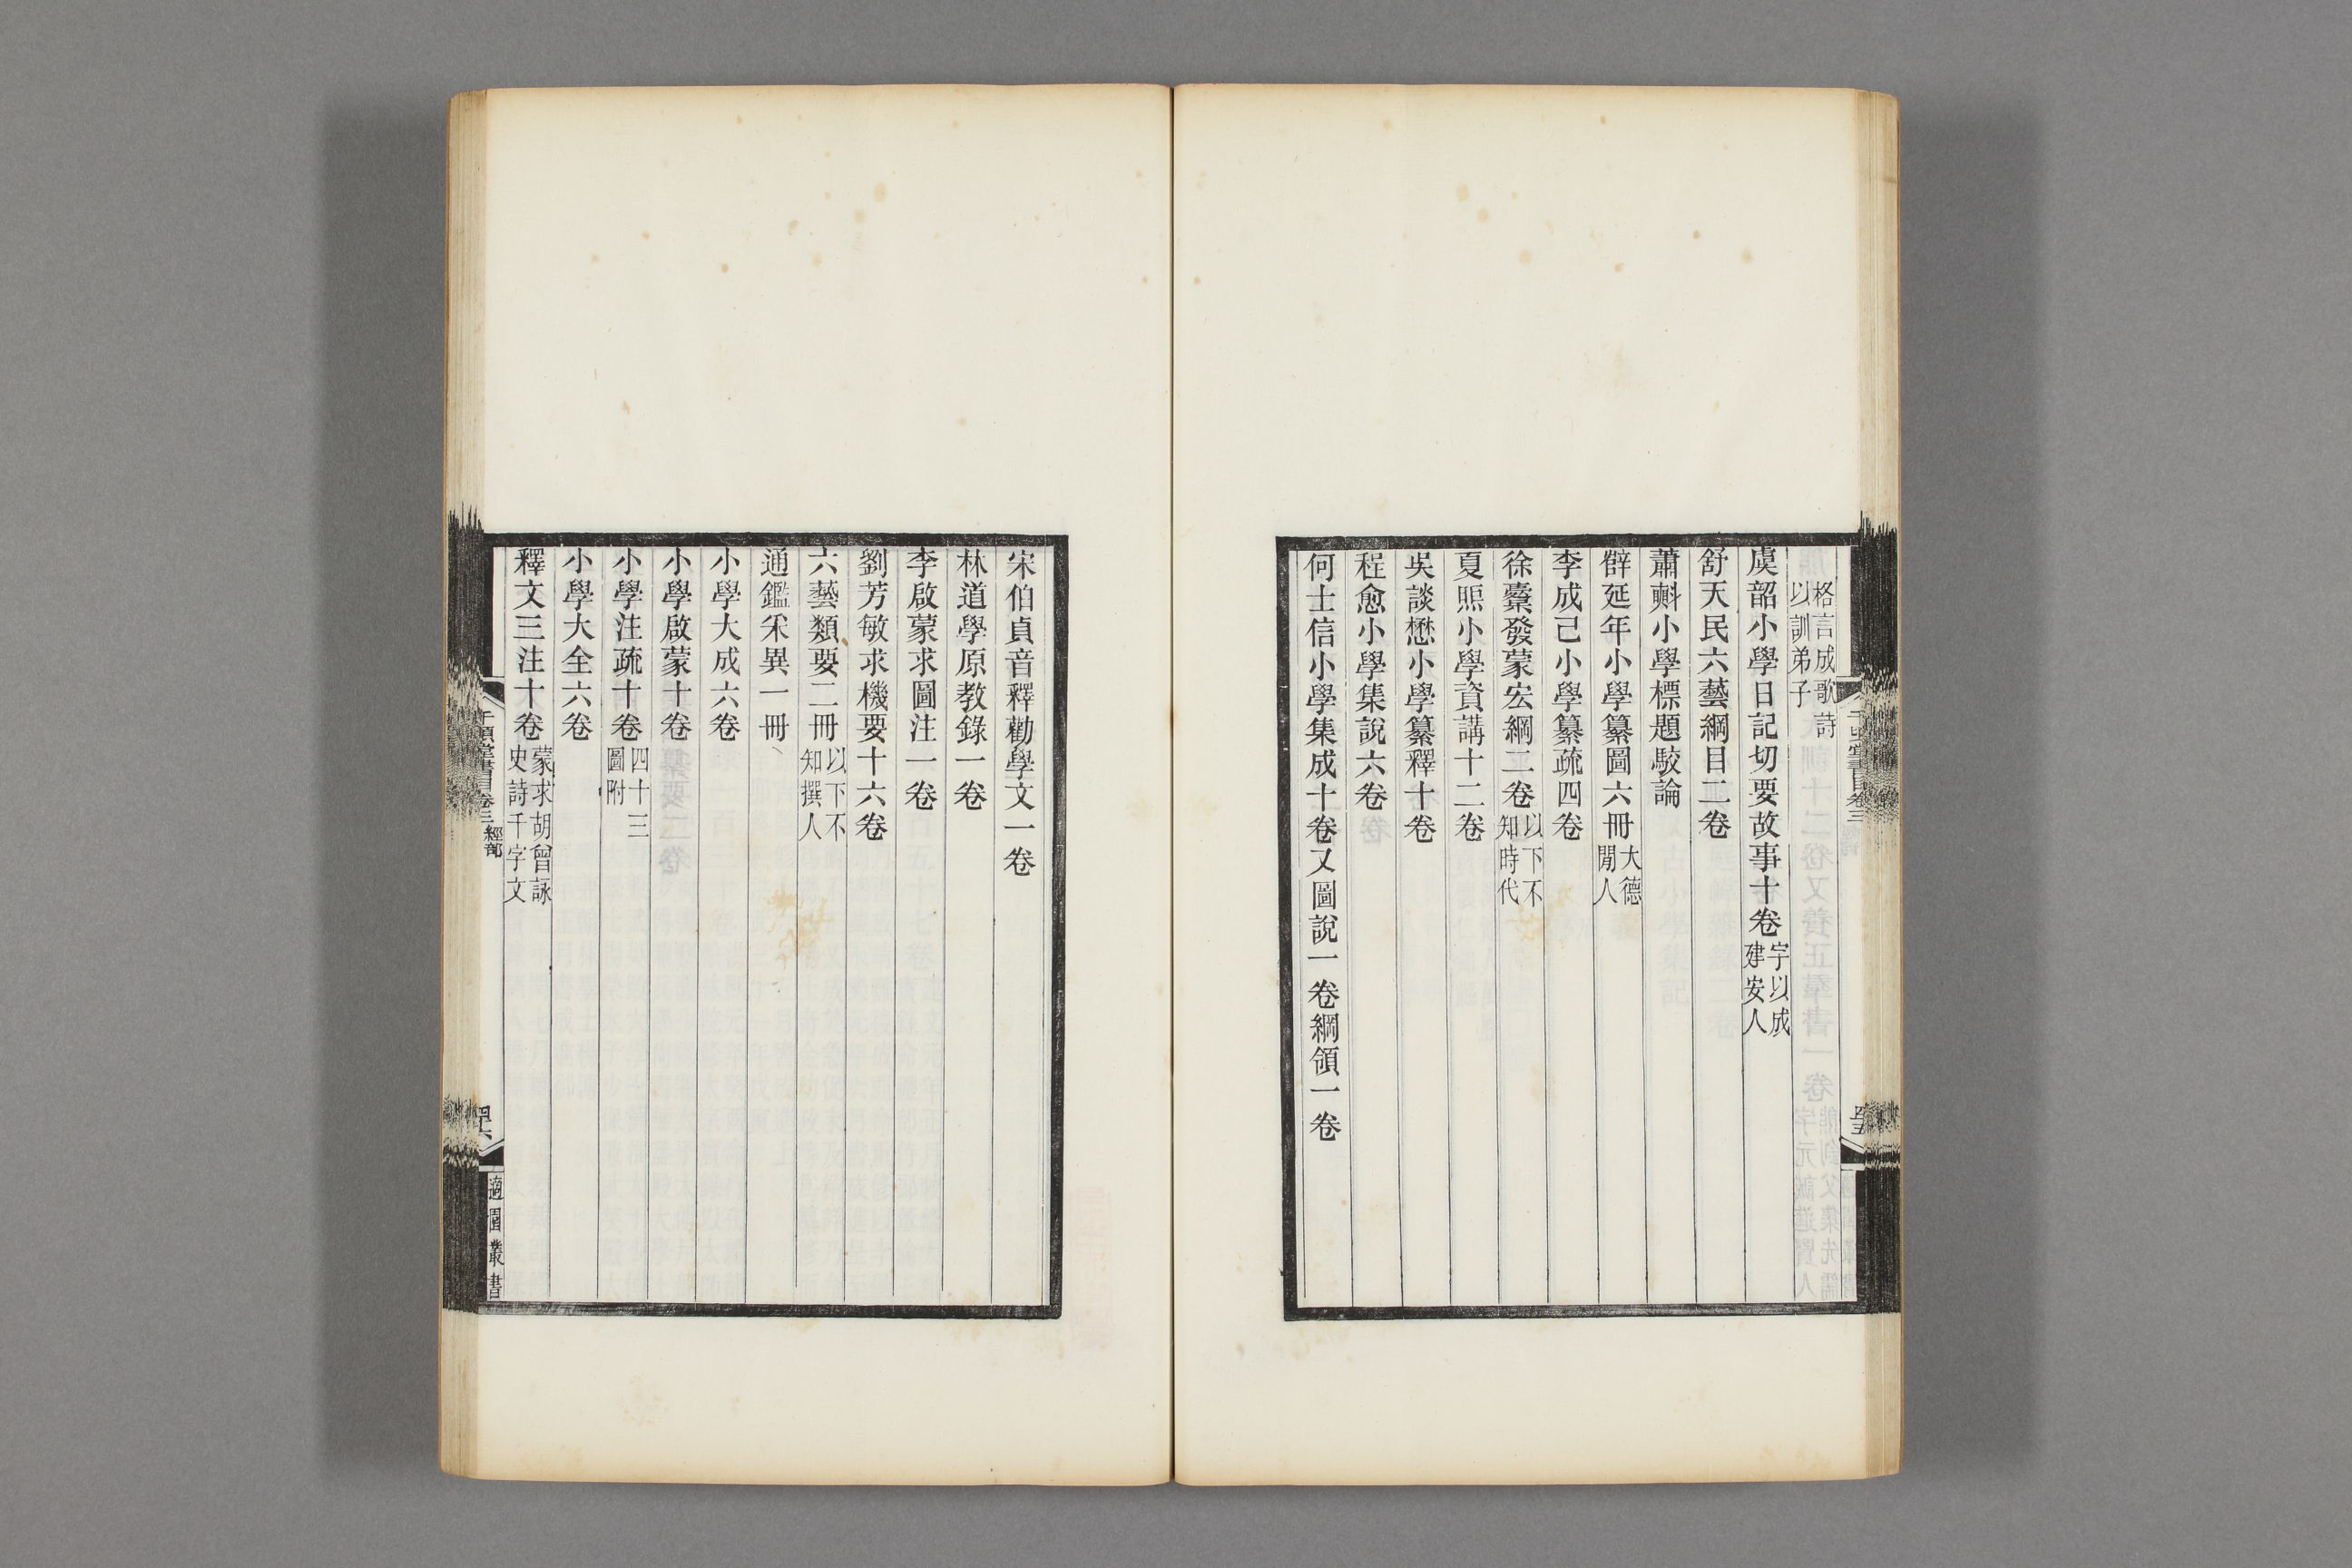 格言成歌詩
以訓弟子
虞韶小學日記切要故事十卷 字以成 建安人
舒天民六藝綱目二卷
蕭㪺小學標題駮論
薛延年小學纂圖六冊 大德 閒人
李成己小學纂疏四卷
徐櫜發蒙宏綱二卷 以下不 知時代
夏煕小學資講十二卷
吳談懋小學纂釋十卷
程愈小學集說六卷
何士信小學集成十卷又圖說一卷綱領一卷
宋伯貞音釋勸學文一卷
林道學原教錄一卷
李啟蒙求圖注一卷
劉芳敏求機要十六卷
六藝類要二冊 以下不 知撰人
通鑑釆異一冊
小學大成六卷
小學啟蒙十卷
小學注疏十卷 四十三 圖附
小學大全六卷
釋文三注十卷 蒙求胡曾詠 史詩千字文
千頃堂書目卷三 經部
四十六
適園叢書